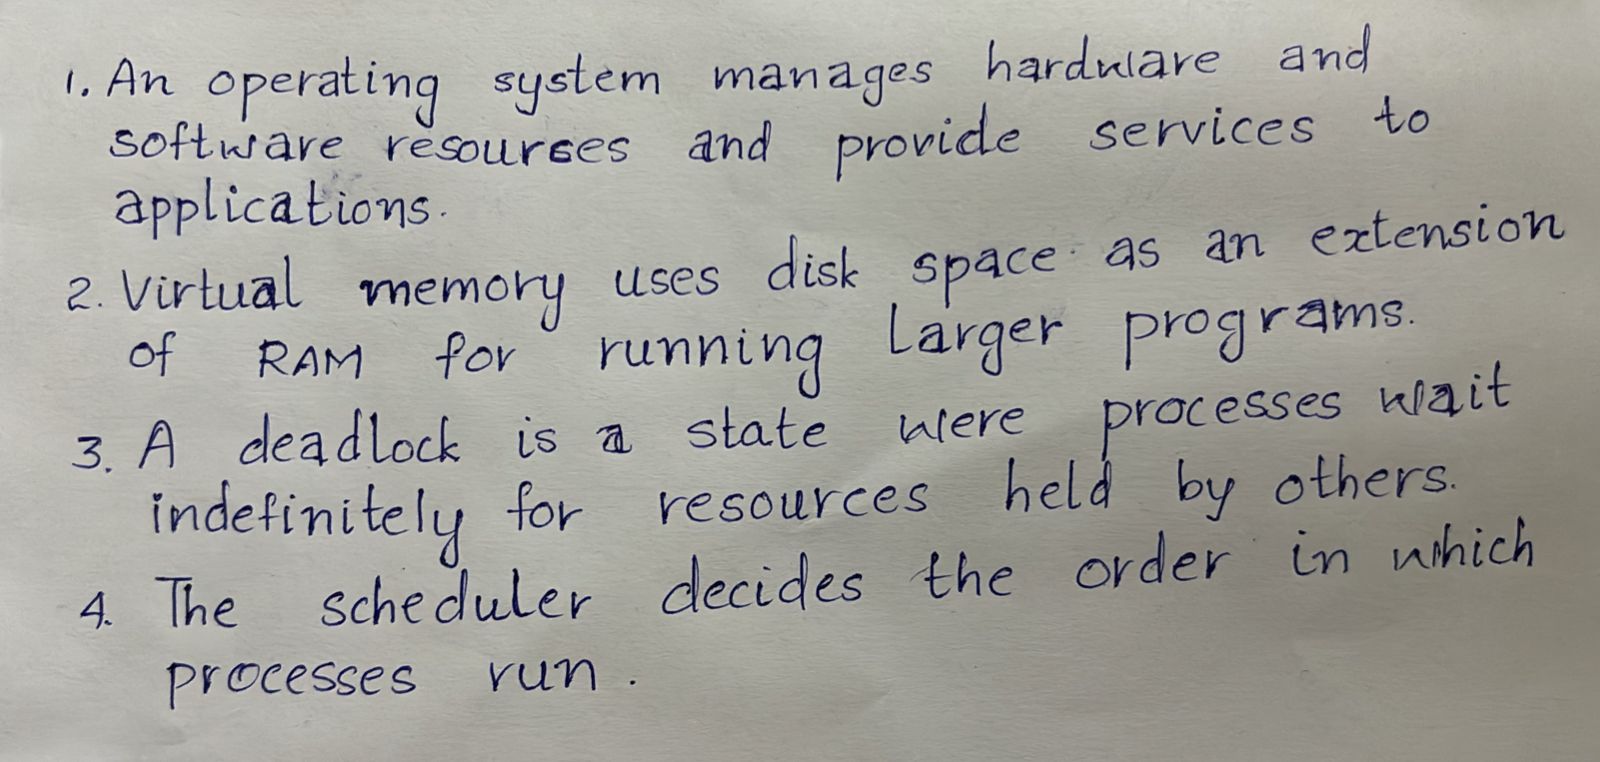 1. An operating system manages hardware and
software resourses and provide services to
applications.
2. Virtual memory uses disk space as an extension
of RAM for running Larger programs.
3. A deadlock is a state were processes wait
indefinitely for resources held by others.
4. The scheduler decides the order in which
processes run.